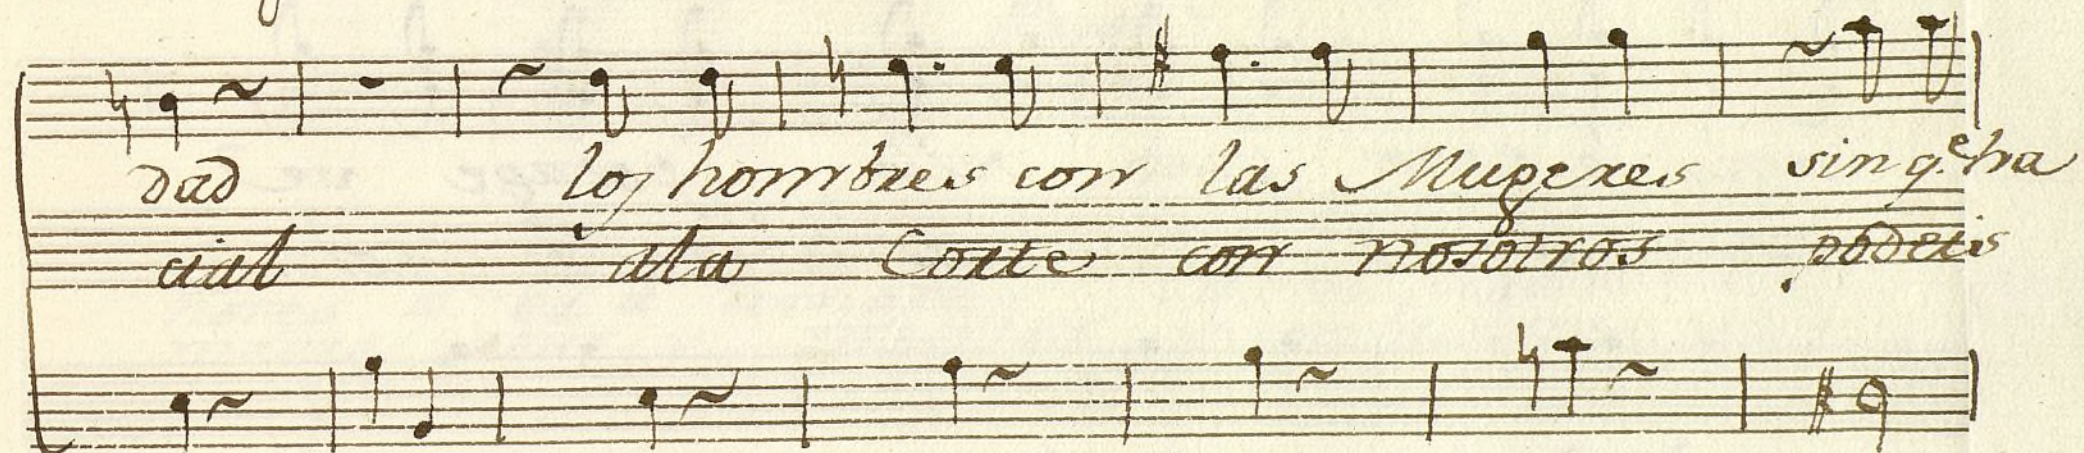 dad los hombres con las Mugeres sin q.e ha
cial ala Corte con nosotros podeis